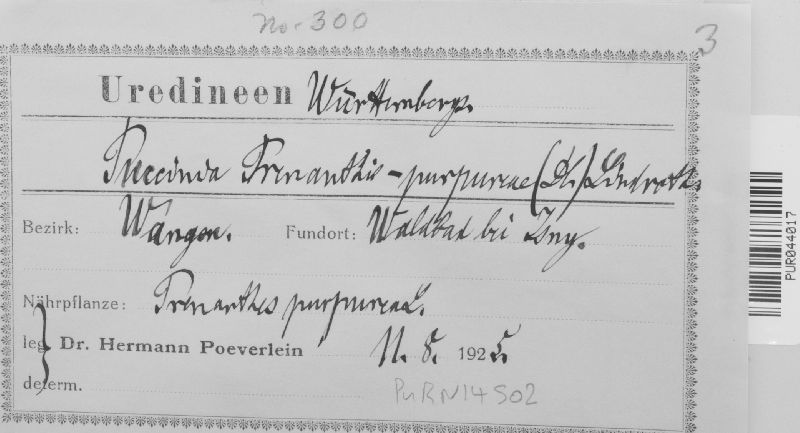 No. 300
3
Uredineen Württembergs.
Puccinia Prenanthis-purpureae (DC.) Lindroth.
Bezirk: Wangen. Fundort: Waldbad bei Isny.
Nährpflanze: Prenanthes purpurea L.
leg. Dr. Hermann Poeverlein 11. 8. 1925.
determ.
PURN14502
PUR044017